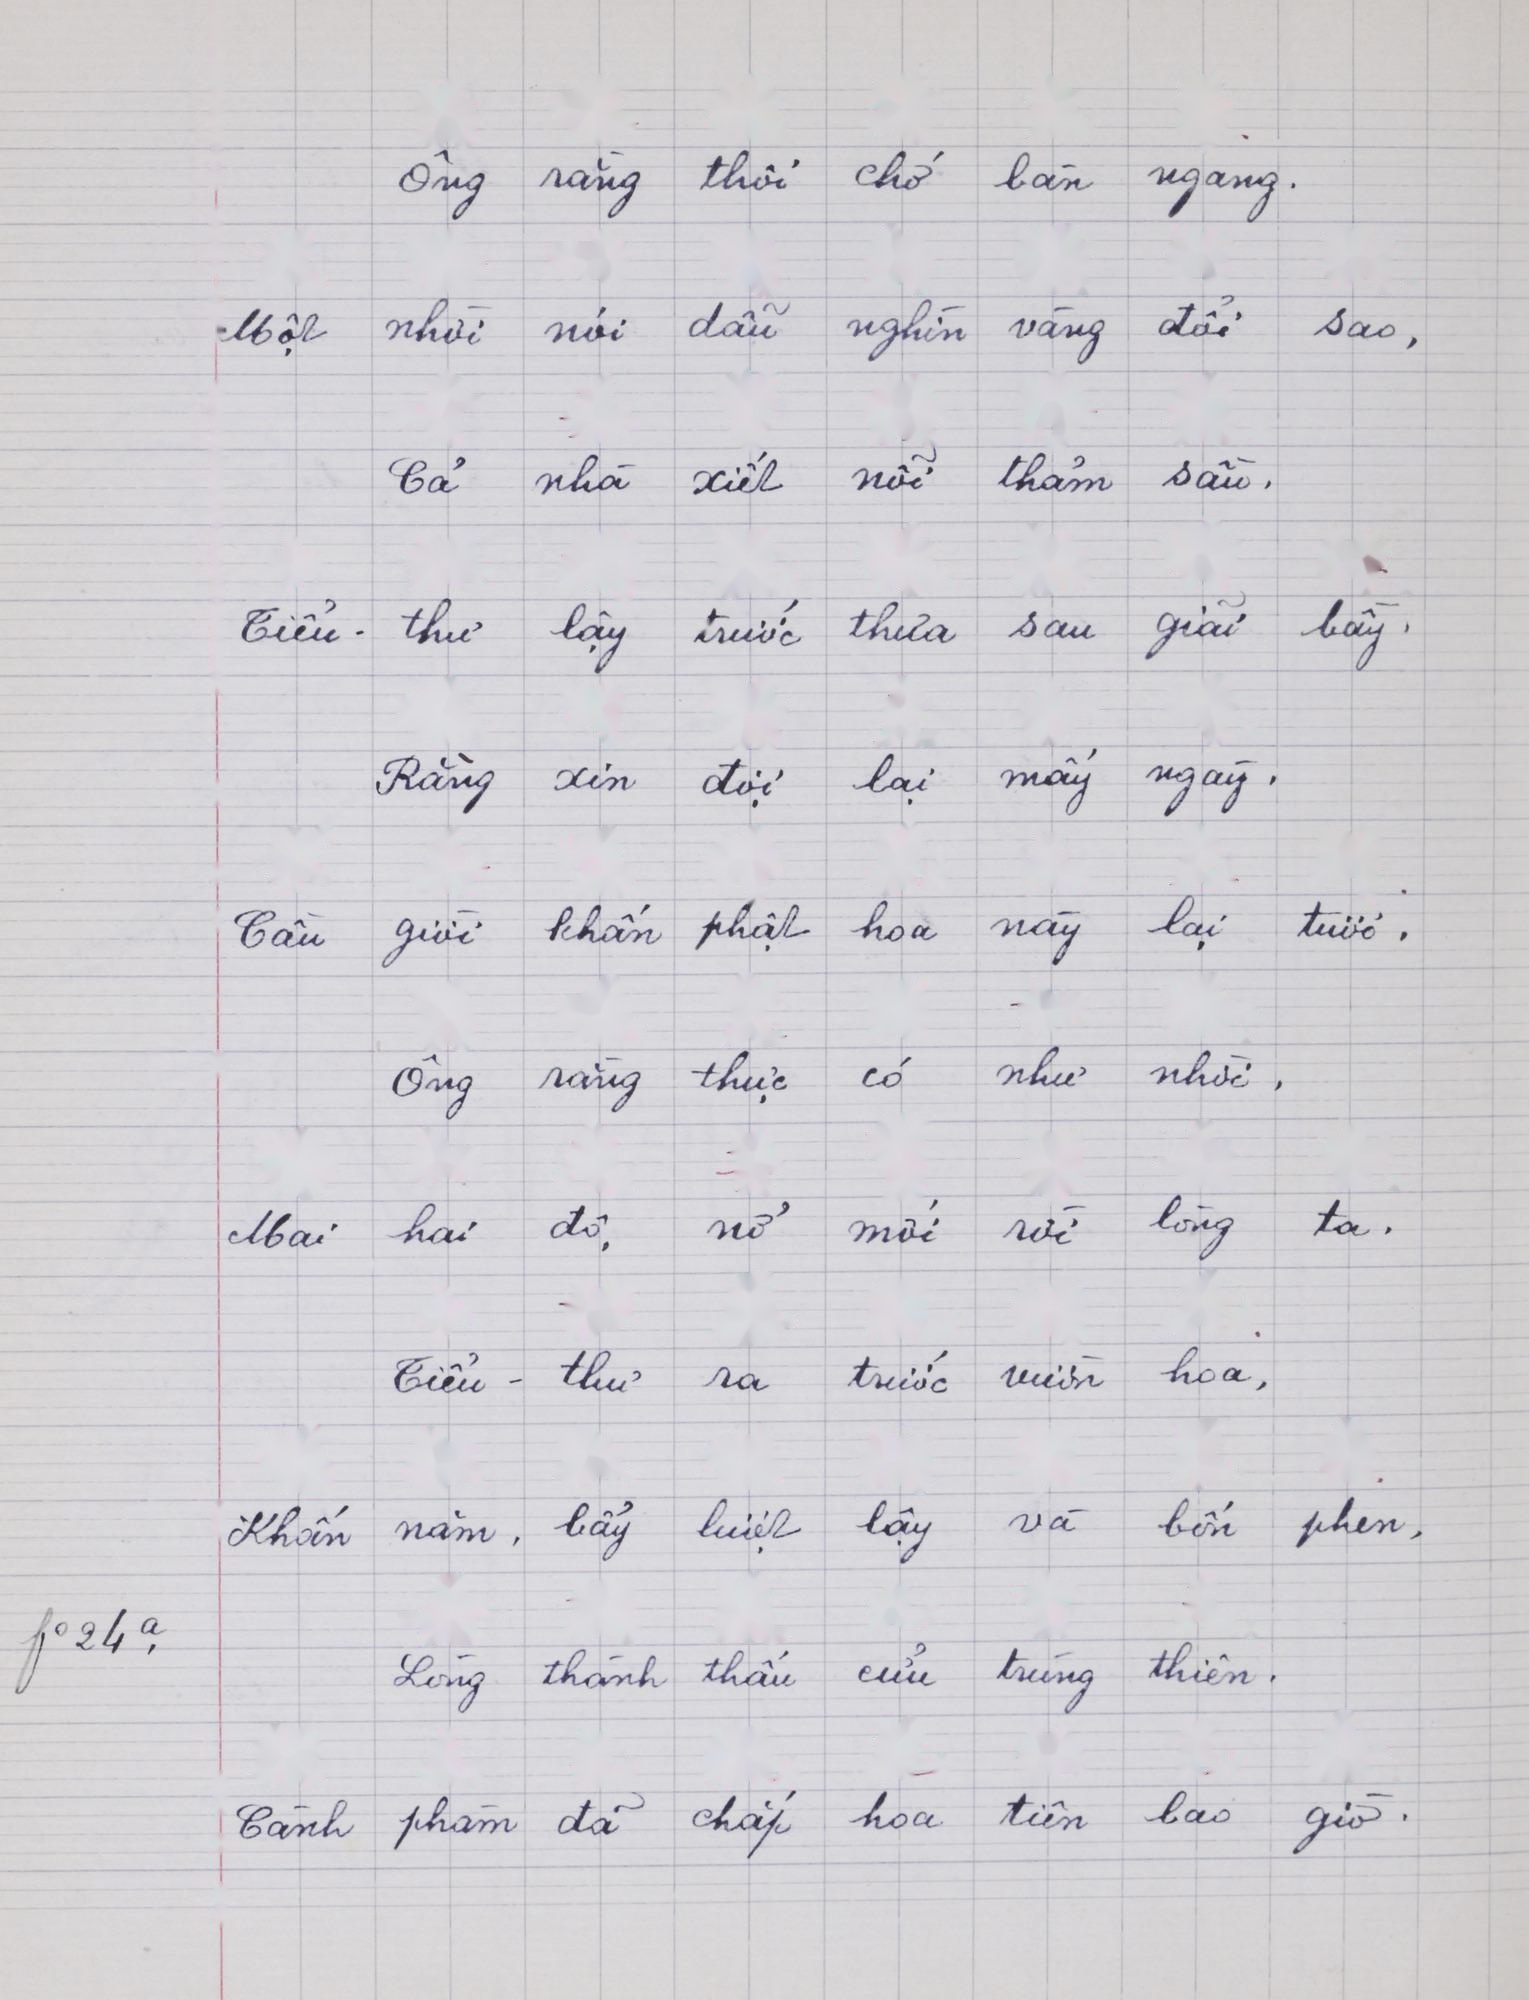 Ông rằng thôi chớ bàn ngang.
Một nhời nói dẫu nghìn vàng đổi sao,
Cả nhà xiết nỗi thảm sầu.
Tiểu-thư lậy trước thưa sau giãi bầy.
Rằng xin đợi lại mấy ngày.
Cầu giời khấn phật hoa này lại tươi.
Ông rằng thực có như nhời,
Mai hai độ, nở mới rồi lòng ta.
Tiểu-thư ra trước vườn hoa,
Khấn năm, bẩy lượt lậy và bốn phen,
fº 24ª.
Lòng thành thấu cửu trùng thiên.
Cành phàm đã chắp hoa tiên bao giờ.